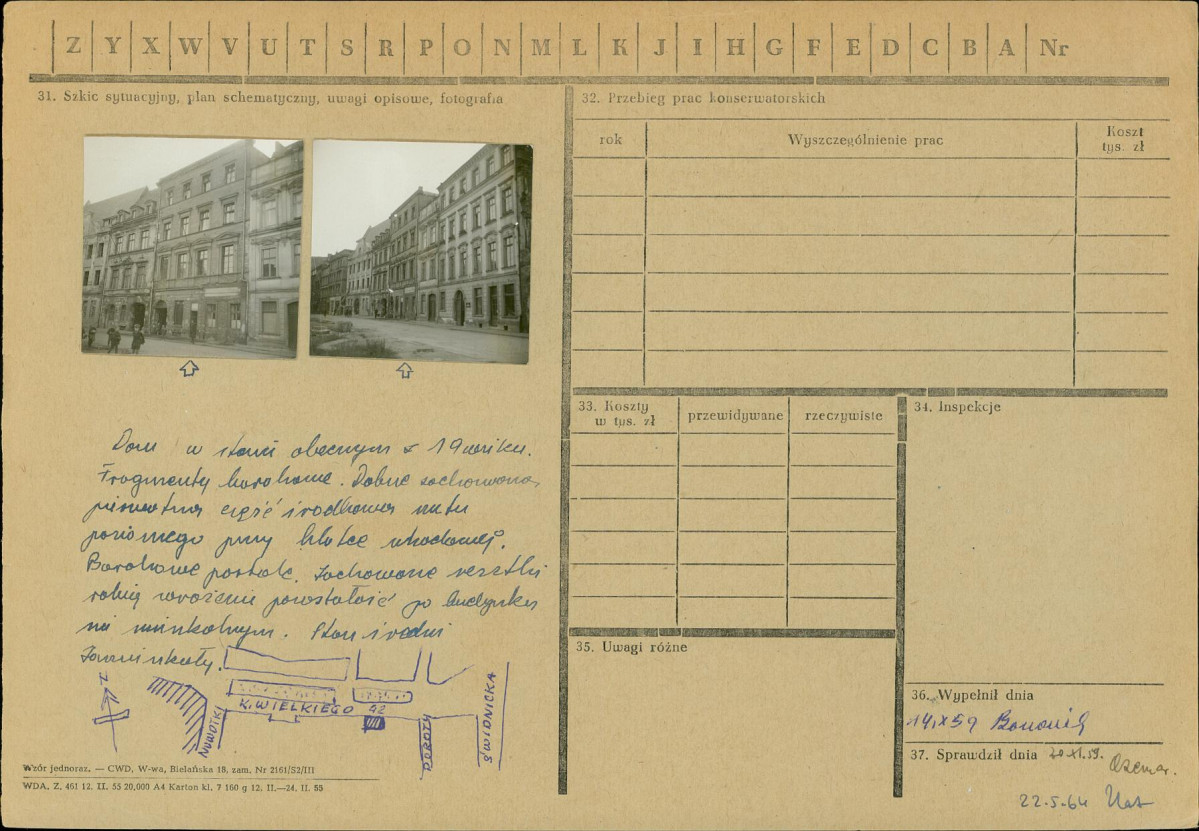 Z Y X W V U T S R P O N M L K J I H G F E D C B A Nr
31. Szkic sytuacyjny, plan schematyczny, uwagi opisowe, fotografia
Dom w stanie obecnym z 19 wieku.
Fragmenty barokowe. Dobrze zachowana
część środkowa
poziomego przy klatce schodowej.
Barokowe portale. Zachowane resztki
pozostałość po budynku
Stan średni
Zamieszkały.
N
K. WIELKIEGO 42
NOWOTKI
DOROTY
ŚWIDNICKA
Wzór jednoraz. — CWD, W-wa, Bielańska 18, zam. Nr 2161/S2/III
WDA. Z. 461 12. II. 55 20,000 A4 Karton kl. 7 160 g 12. II.—24. II. 55
32. Przebieg prac konserwatorskich
rok Wyszczególnienie prac Koszt
tys. zł
33. Koszty
w tys. zł
przewidywane rzeczywiste
34. Inspekcje
35. Uwagi różne
36. Wypełnił dnia
14.IX 59
37. Sprawdził dnia 20.XI.59.
22.5.64